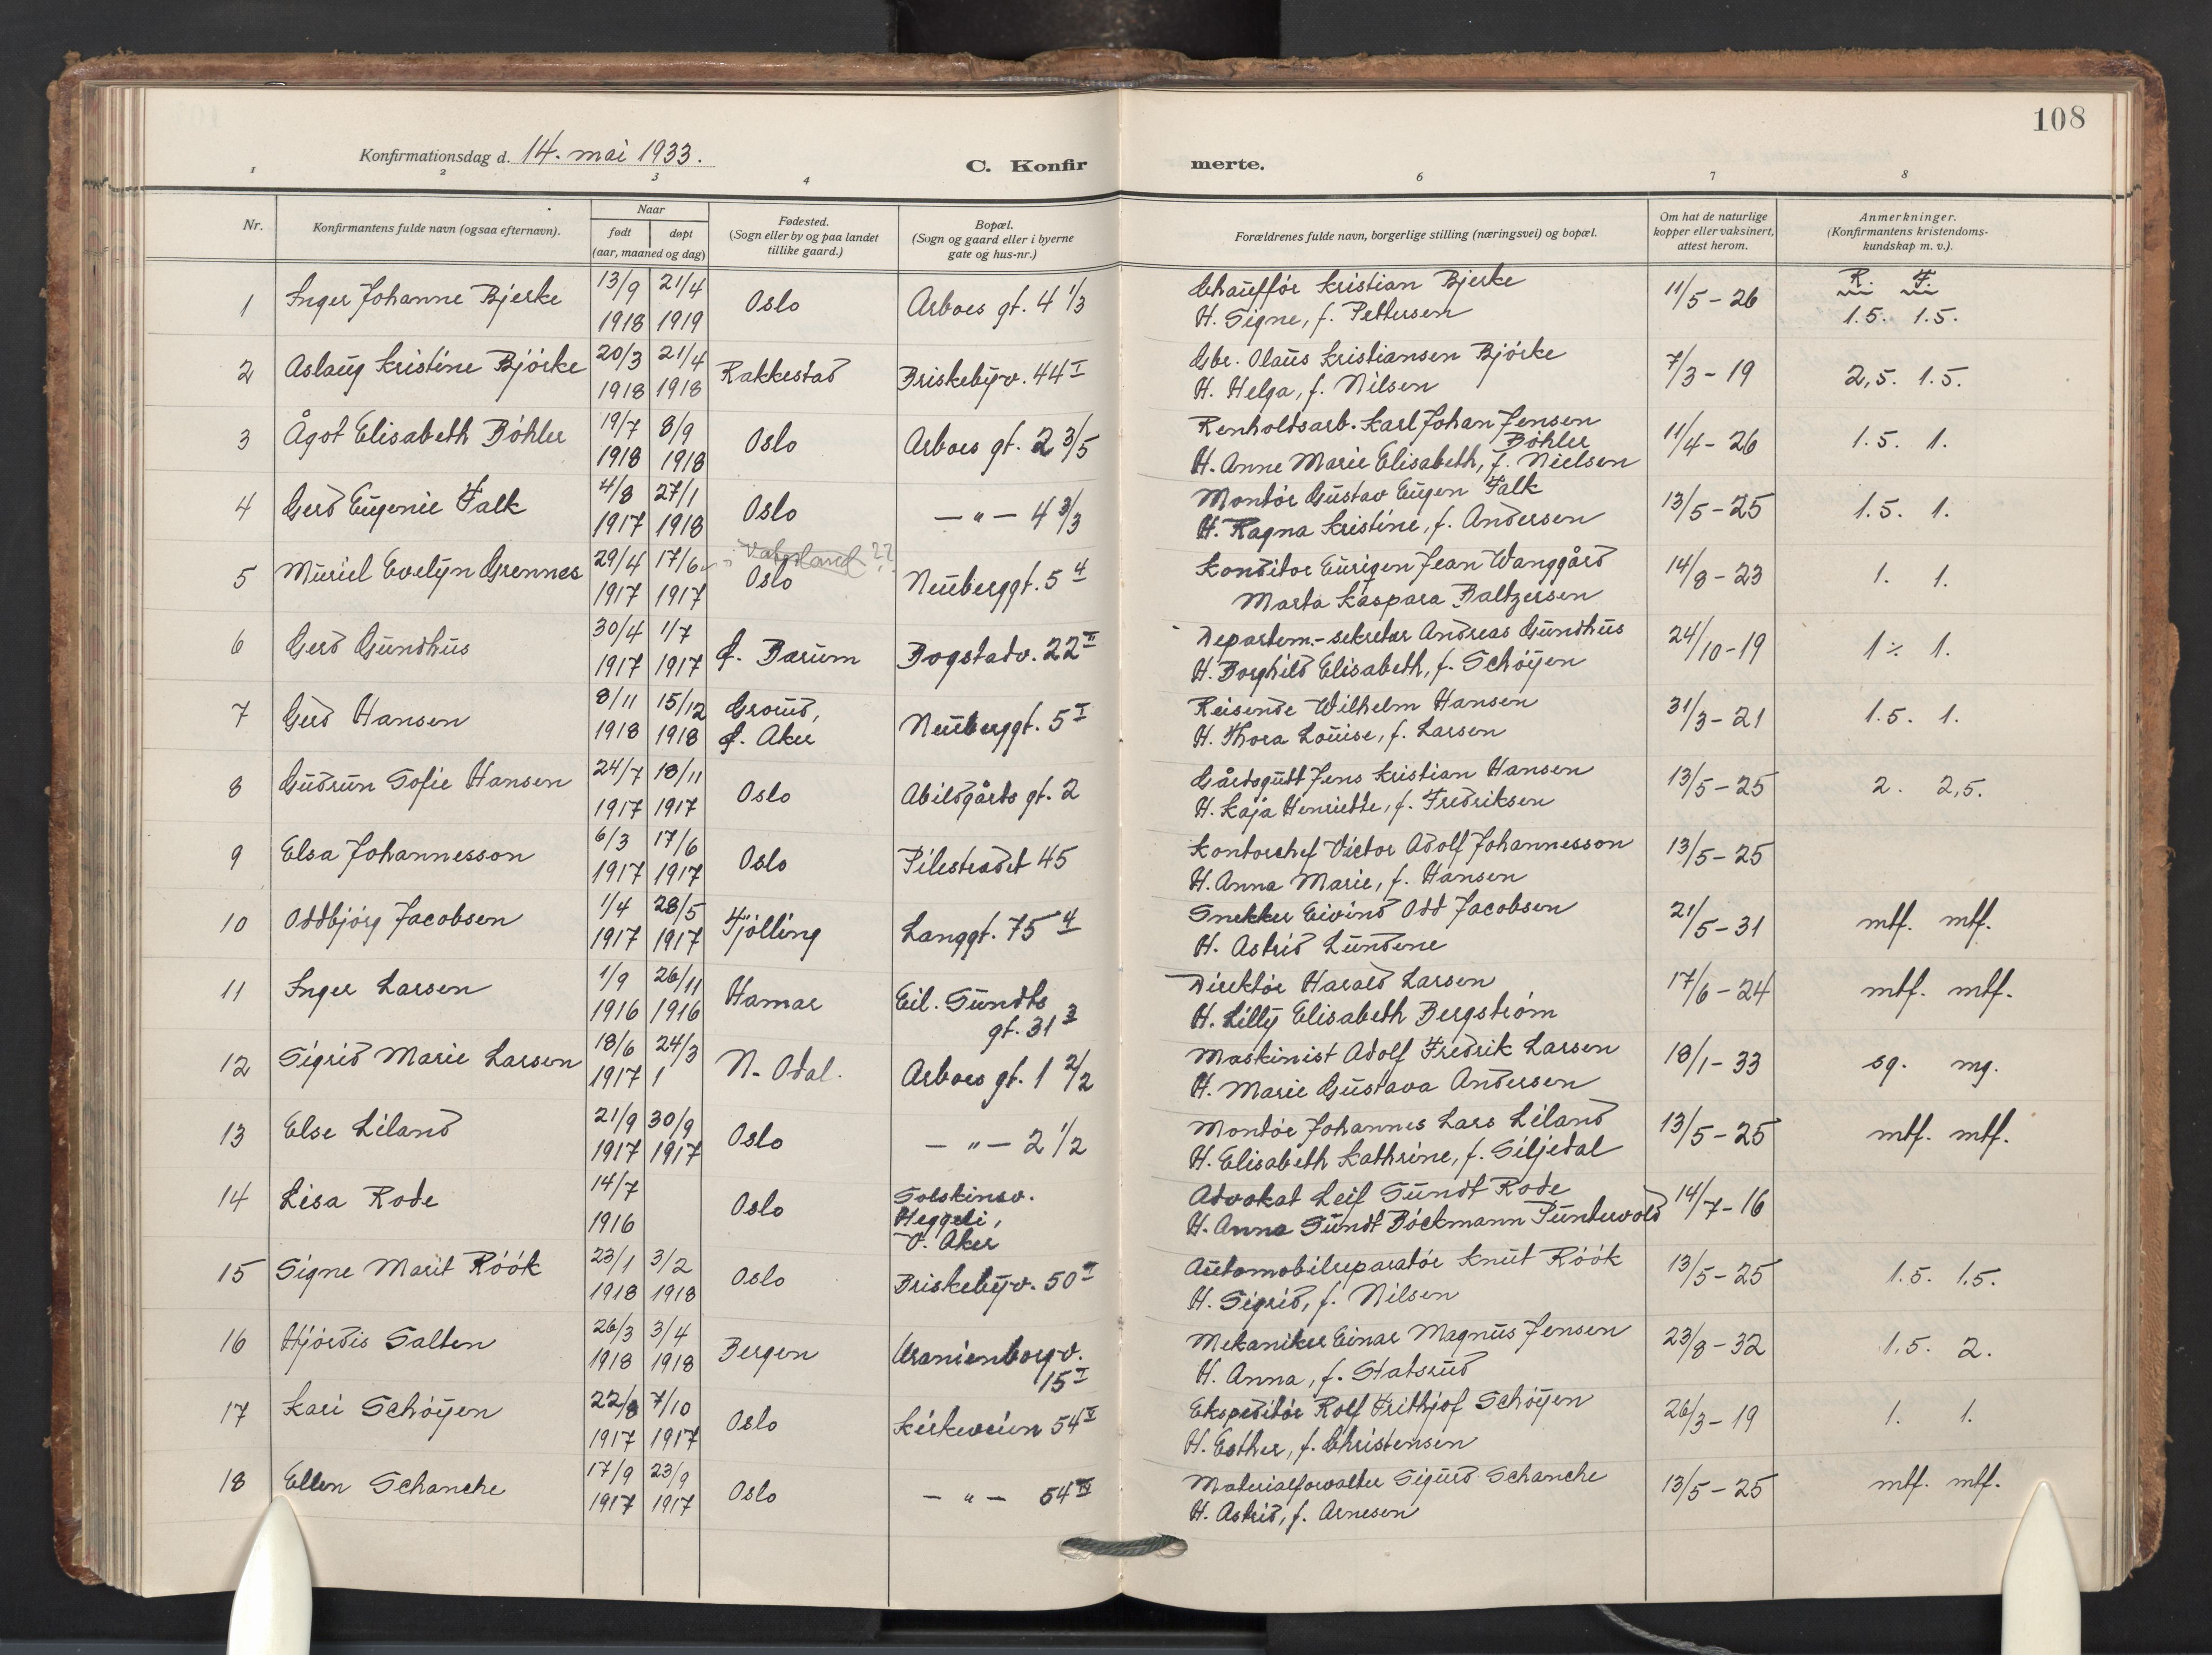 108
Konfirmationsdag d. 14. mai 1933.
C. Konfirmerte.
1 2 3 4 6 7 8
Nr.
Konfirmantens fulde navn (ogsaa efternavn).
Naar
født døpt
(aar, maaned og dag)
Fødested.
(Sogn eller by og paa landet
tillike gaard.)
Bopæl.
(Sogn og gaard eller i byerne
gate og hus-nr.)
Forældrenes fulde navn, borgerlige stilling (næringsvei) og bopæl.
Om hat de naturlige
kopper eller vaksinert,
attest herom.
Anmerkninger.
(Konfirmantens kristendoms-
kundskap m. v.).
R. F.
1 Inger Johanne Bjerke 13/9 1918 21/4 1919 Oslo Arboes gt. 4 1/3 Chauffør Kristian Bjerke
H. Signe, f. Pettersen 11/5-26 1.5. 1.5.
2 Aslaug Kristine Bjørke 20/3 1918 21/4 1918 Rakkestad Briskebyv. 44 I Gbr. Olaus Kristiansen Bjørke
H. Helga, f. Nilsen 7/3-19 2,5. 1.5.
3 Ågot Elisabeth Bøhler 19/7 1918 8/9 1918 Oslo Arboes gt. 2 3/5 Renholdsarb. Karl Johan Jensen
Bøhler
H. Anne Marie Elisabeth, f. Nielsen 11/4-26 1.5. 1.
4 Gerd Eugenie Falk 4/8 1917 27/1 1918 Oslo — " — 4 3/3 Montør Gustav Eugen Falk
H. Ragna Kristine, f. Andersen 13/5-25 1.5. 1.
5 Muriel Evelyn Grennes 29/4 1917 17/6 1917 Oslo Neuberggt. 5 4 Konditor Eurigen Jean Wanggård
Marta Kaspara Baltzersen 14/8-23 1. 1.
6 Gerd Gundhus 30/4 1917 1/7 1917 Ø. Bærum Bogstadv. 22 II Departem.-sekretær Andreas Gundhus
H. Borghild Elisabeth, f. Schøyen 24/10-19 1 ٪ 1.
7 Gerd Hansen 8/11 1918 15/12 1918 Grorud,
Ø. Aker Neuberggt. 5 I Reisende Wilhelm Hansen
H. Thora Louise, f. Larsen 31/3-21 1.5. 1.
8 Gudrun Sofie Hansen 24/7 1917 18/11 1917 Oslo Abildgårds gt. 2 Gårdsgutt Jens Kristian Hansen
H. Kaja Henriette, f. Fredriksen 13/5-25 2. 2,5.
9 Elsa Johannesson 6/3 1917 17/6 1917 Oslo Pilestrædet 45 Kontorchef Victor Adolf Johannesson
H. Anna Marie, f. Hansen 13/5-25
10 Oddbjørg Jacobsen 1/4 1917 28/5 1917 Tjølling Langgt. 75 4 Snekker Eivind Odd Jacobsen
H. Astrid Lundene 21/5-31 mtf. mtf.
11 Inger Larsen 1/9 1916 26/11 1916 Hamar Eil. Sundts
gt. 31 3 Direktør Harald Larsen
H. Lilly Elisabeth Bergstrøm 17/6-24 mtf. mtf.
12 Sigrid Marie Larsen 18/6 1917 24/3 1 N. Odal. Arboes gt. 1 2/2 Maskinist Adolf Fredrik Larsen
H. Marie Gustava Andersen 18/1-33 sg. mg.
13 Else Liland 21/9 1917 30/9 1917 Oslo — " — 2 1/2 Montør Johannes Lars Liland
H. Elisabeth Kathrine, f. Siljedal 13/5-25 mtf. mtf.
14 Lisa Rode 14/7 1916 Oslo Solskinsv.
Heggeli,
V. Aker Advokat Leif Sundt Rode
H. Anna Sundt Bøckmann Puntervold 14/7-16
15 Signe Marit Röök 23/1 1918 3/2 1918 Oslo Briskebyv. 50 II Automobilreparatør Knut Röök
H. Sigrid, f. Nilsen 13/5-25 1.5. 1.5.
16 Hjørdis Salten 26/3 1918 3/4 1918 Bergen Uranienborg-v.
15 I Mekaniker Einar Magnus Jensen
H. Anna, f. Statsrud 23/8-32 1.5. 2.
17 Kari Schøyen 22/8 1917 7/10 1917 Oslo Kirkeveien 54 II Ekspeditør Rolf Frithjof Schøyen
H. Esther, f. Christensen 26/3-19 1. 1.
18 Ellen Schanche 17/9 1917 23/9 1917 Oslo — " — 54 IV Materialforvalter Sigurd Schanche
H. Astrid, f. Arnesen 13/5-25 mtf. mtf.